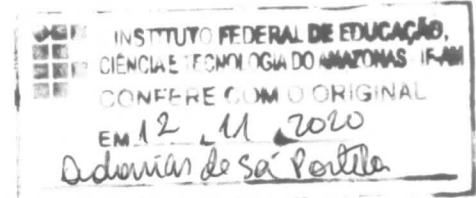 INSTITUTO FEDERAL DE EDUCAÇÃO,
CIÊNCIA E TECNOLOGIA DO AMAZONAS IFAM
CONFERE COM O ORIGINAL
EM 12 11 2020
de Sá